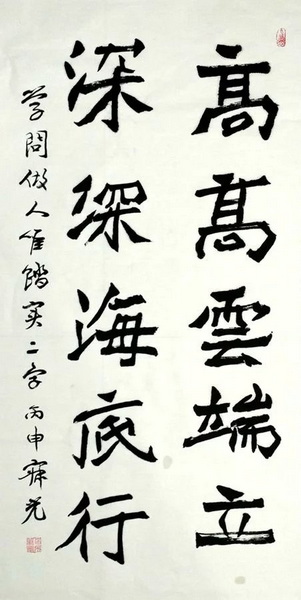 高高雲端立
深深海底行
学問做人惟踏实二字丙申寐堯